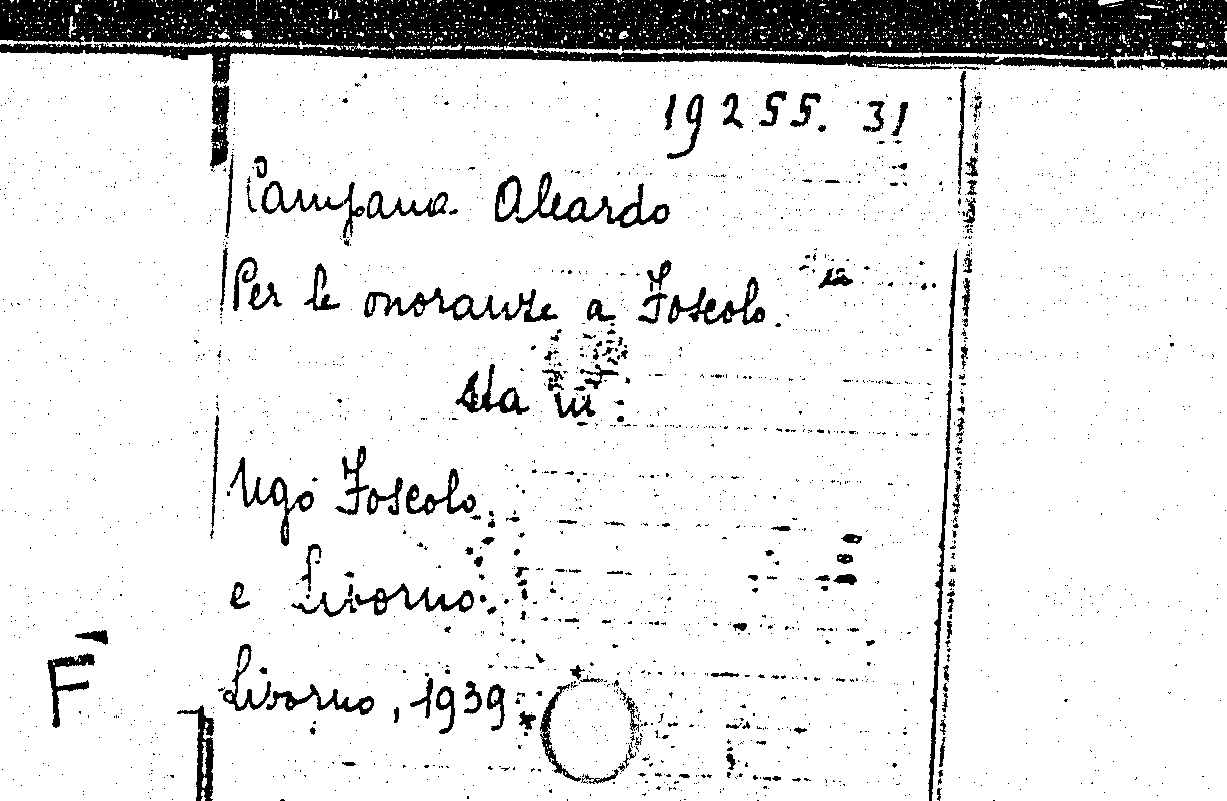 19255. 31
Campana Aleardo
Per le onoranze a Foscolo.
sta in:
Ugo Foscolo
e Livorno.
F
Livorno, 1939.